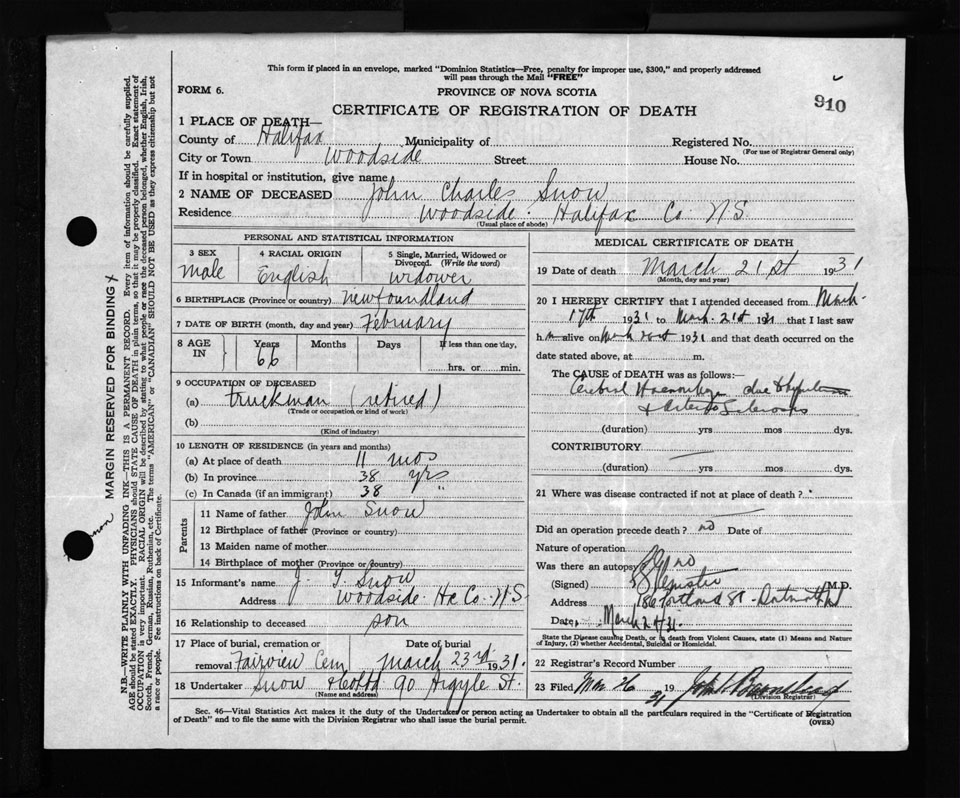 This form if placed in an envelope, marked "Dominion Statistics—Free, penalty for improper use, $300," and properly addressed
will pass through the Mail "FREE"
FORM 6.
PROVINCE OF NOVA SCOTIA
910
CERTIFICATE OF REGISTRATION OF DEATH
1 PLACE OF DEATH—
County of Halifax Municipality of Registered No.
(For use of Registrar General only)
City or Town Woodside Street House No.
If in hospital or institution, give name
2 NAME OF DECEASED John Charles Snow
Residence Woodside Halifax Co. N.S.
(Usual place of abode)
PERSONAL AND STATISTICAL INFORMATION
3 SEX 4 RACIAL ORIGIN 5 Single, Married, Widowed or
Divorced. (Write the word)
male English widower
6 BIRTHPLACE (Province or country) Newfoundland
7 DATE OF BIRTH (month, day and year) February
8 AGE IN Years Months Days If less than one day,
66 hrs. or min.
9 OCCUPATION OF DECEASED
(a) truckman (retired)
(Trade or occupation or kind of work)
(b)
(Kind of industry)
10 LENGTH OF RESIDENCE (in years and months)
(a) At place of death 11 mos
(b) In province 38 yrs
(c) In Canada (if an immigrant) 38 "
Parents
11 Name of father John Snow
12 Birthplace of father (Province or country)
13 Maiden name of mother
14 Birthplace of mother (Province or country)
15 Informant's name J. Snow
Address Woodside Hx Co. N.S.
16 Relationship to deceased son
17 Place of burial, cremation or Date of burial
removal Fairview Cem March 23rd 1931.
18 Undertaker Snow & Co Ltd 90 Argyle St.
(Name and address)
MEDICAL CERTIFICATE OF DEATH
19 Date of death March 21st 1931
(Month, day and year)
20 I HEREBY CERTIFY that I attended deceased from March
17th 1931 to March 21st 1931 that I last saw
him alive on March 1931 and that death occurred on the
date stated above, at m.
The CAUSE of DEATH was as follows:—
Cerebral Haemorrhage due to
& Arterio Sclerosis
(duration) yrs mos dys.
CONTRIBUTORY.
(duration) yrs mos dys.
21 Where was disease contracted if not at place of death?
Did an operation precede death? no Date of
Nature of operation
Was there an autopsy? no
(Signed) M.D.
Address Portland St. Dartmouth
Date, March 31.
State the Disease causing Death, or in death from Violent Causes, state (1) Means and Nature
of Injury, (2) whether Accidental, Suicidal or Homicidal.
22 Registrar's Record Number
23 Filed Mar 26 1931
(Division Registrar)
Sec. 46—Vital Statistics Act makes it the duty of the Undertaker or person acting as Undertaker to obtain all the particulars required in the "Certificate of Registration
of Death" and to file the same with the Division Registrar who shall issue the burial permit.
(OVER)
MARGIN RESERVED FOR BINDING
N.B.—WRITE PLAINLY WITH UNFADING INK—THIS IS A PERMANENT RECORD. Every item of information should be carefully supplied.
AGE should be stated EXACTLY. PHYSICIANS should STATE CAUSE OF DEATH in plain terms, so that it may be properly classified. Exact statement of
OCCUPATION is very important. RACIAL ORIGIN will be described by stating to what people or race the deceased person belonged, whether English, Irish,
Scotch, French, German, Russian, Ruthenian, etc. The terms "AMERICAN" or "CANADIAN" SHOULD NOT BE USED as they express citizenship but not
a race or people. See instructions on back of Certificate.